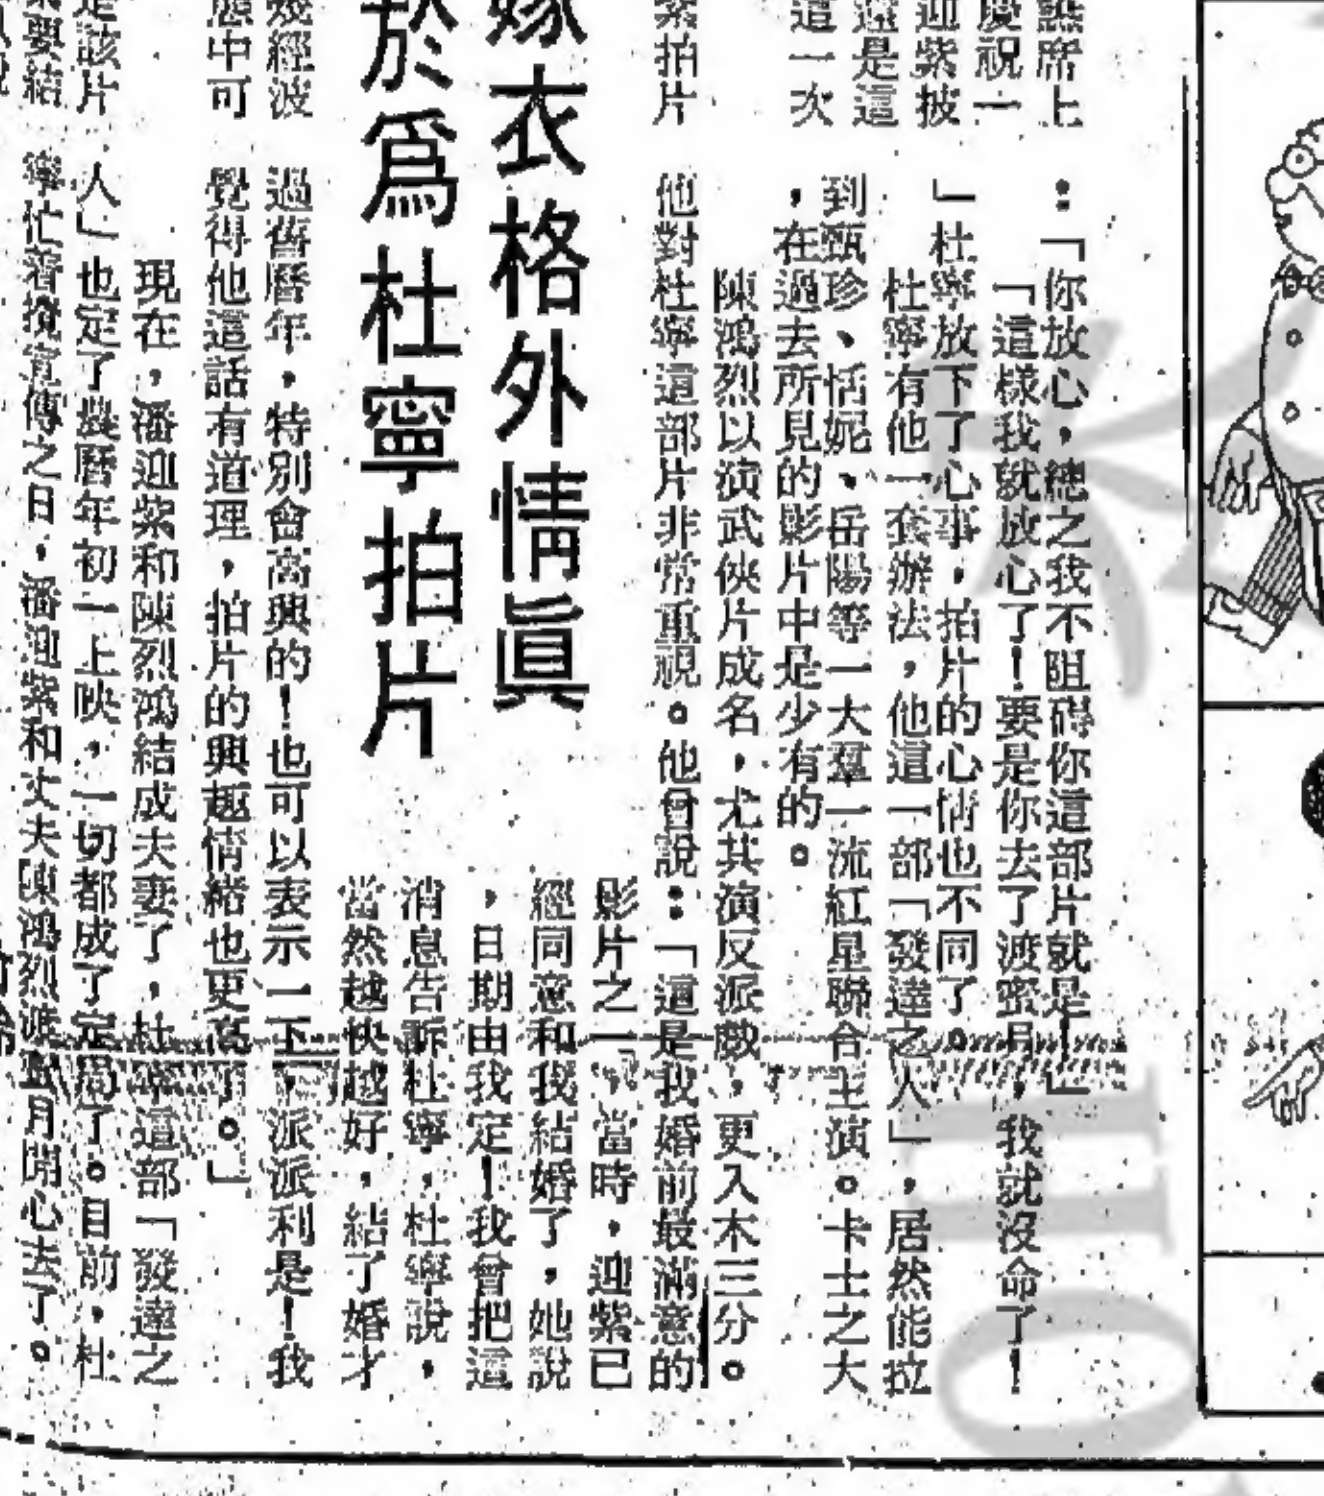 讌席上
慶祝一
迎紫披
這是這
這一次
紫拍片
：「你放心，總之我不阻碍你這部片就是！」
「這樣我就放心了！要是你去了渡蜜月，我就沒命了！
」杜寧放下了心事，拍片的心情也不同了。
杜寧有他一套辦法，他這一部「發達之人」，居然能拉
到甄珍、恬妮、岳陽等一大羣一流紅星聯合主演。卡士之大
，在過去所見的影片中是少有的。
陳鴻烈以演武俠片成名，尤其演反派戲，更入木三分。
他對杜寧這部片非常重視。他曾說：「這是我婚前最滿意的
影片之一，當時，迎紫已
經同意和我結婚了，她說
，日期由我定！我曾把這
消息告訴杜寧，杜寧說，
當然越快越好，結了婚才
嫁衣格外情眞
於爲杜寧拍片
幾經波
態中可
過舊曆年，特別會高興的！也可以表示一下，派派利是！我
覺得他這話有道理，拍片的興趣情緒也更高了。」
現在，潘迎紫和陳烈鴻結成夫妻了，杜寧這部「發達之
人」也定了農曆年初一上映，一切都成了定局了。目前，杜
寧忙着攪宣傳之日，潘迎紫和丈夫陳鴻烈渡蜜月開心去了。
該片
要結